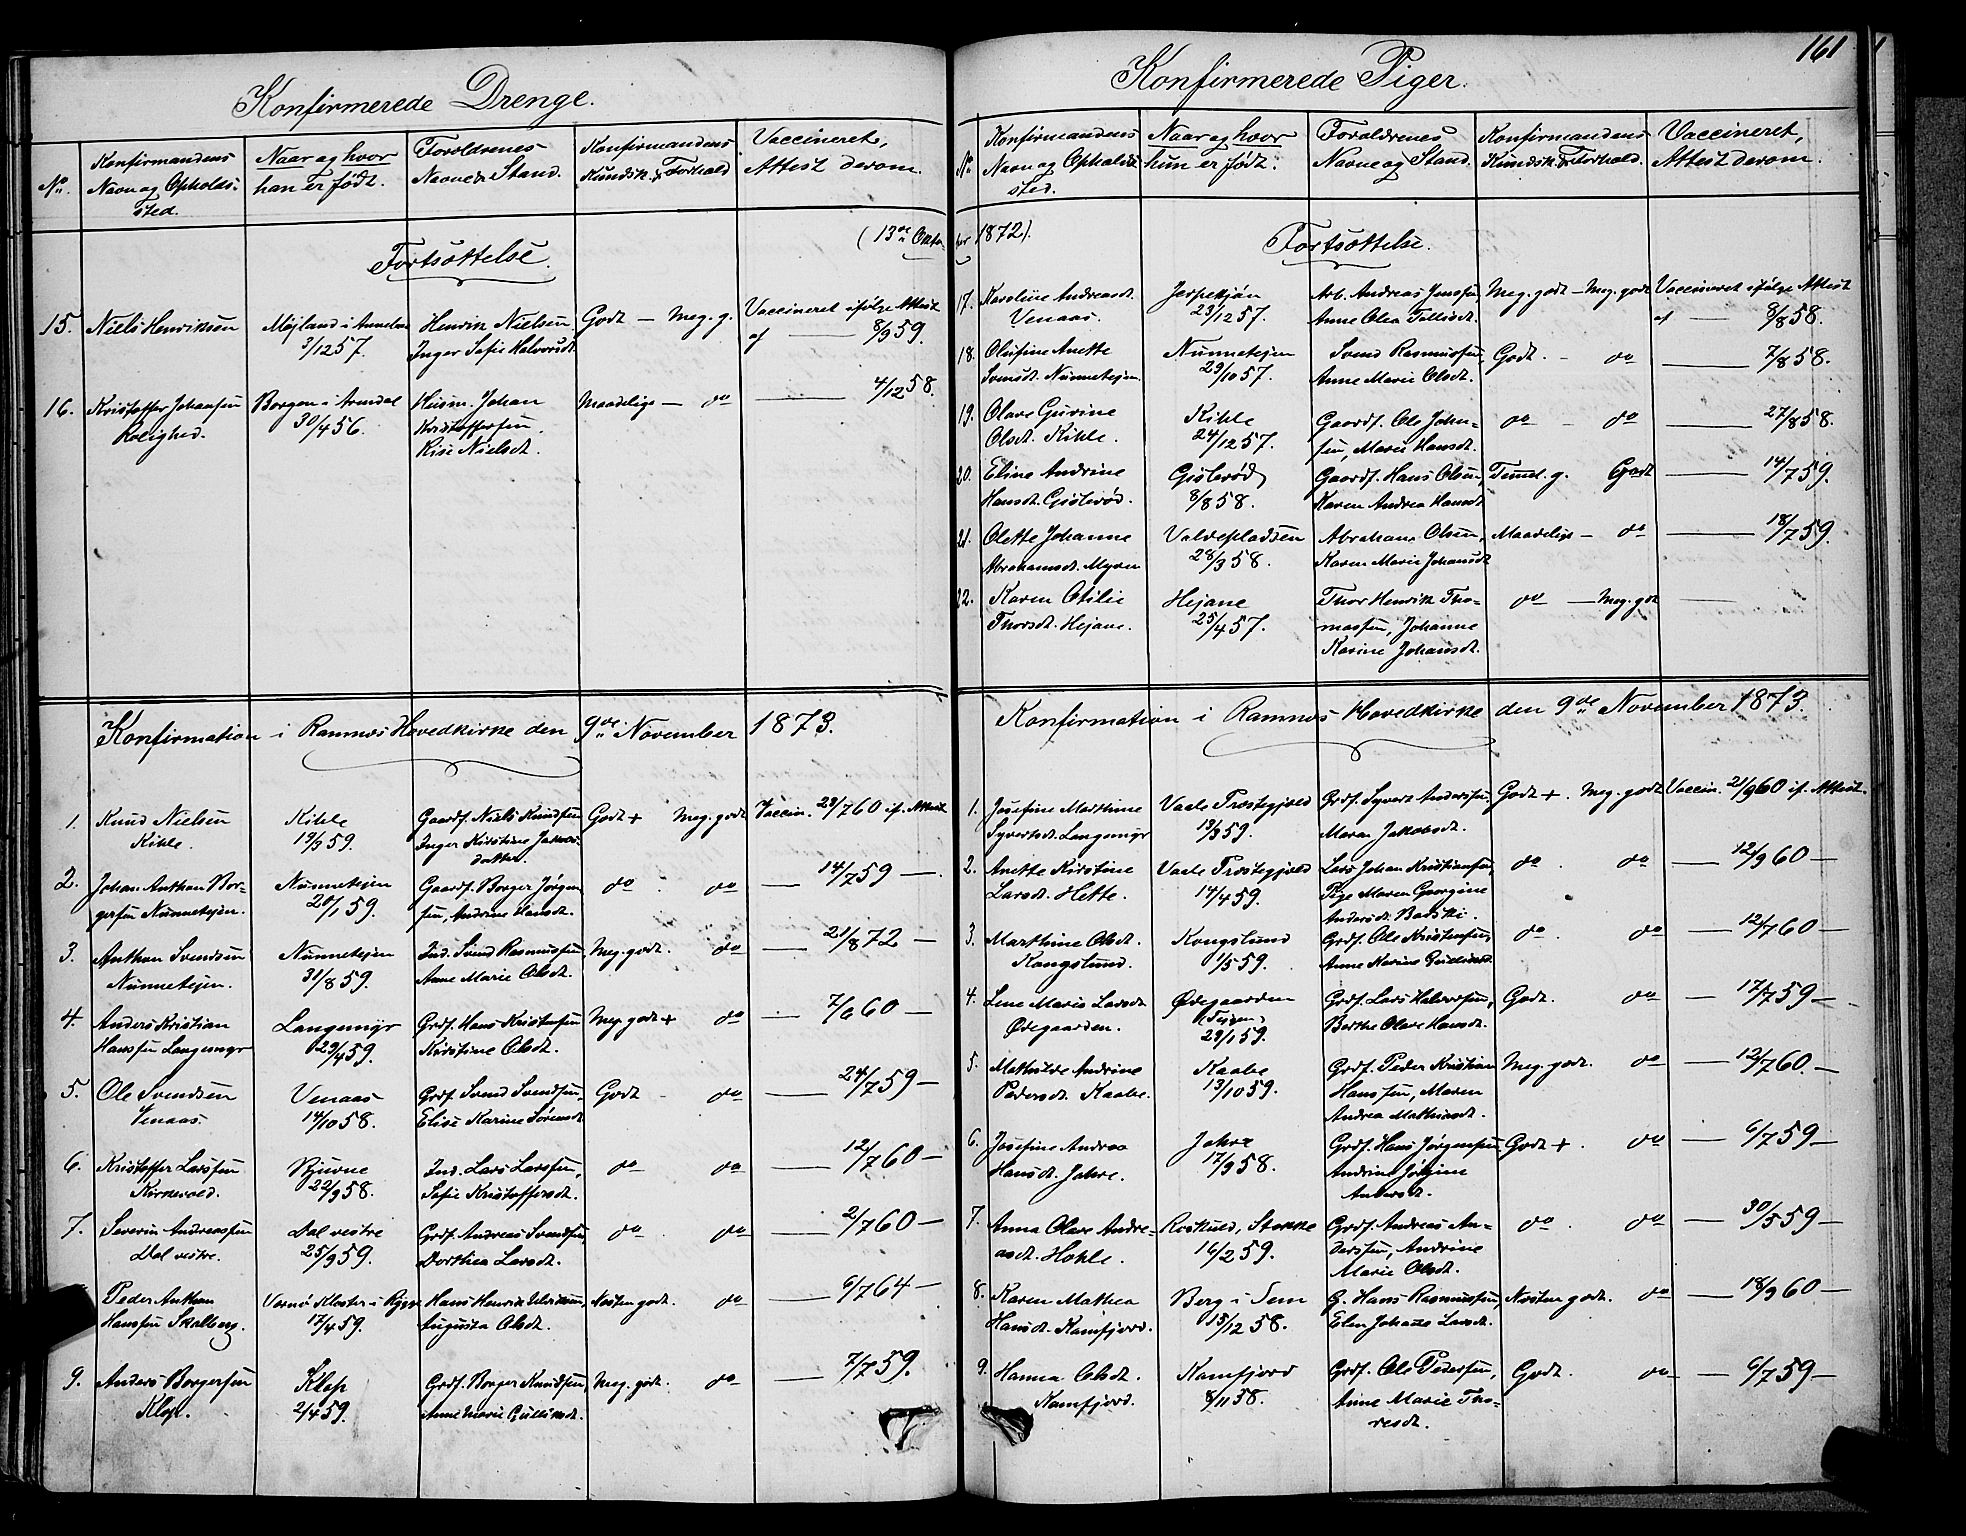 161
Konfirmerede Drenge.
No.
Konfirmandens
Navn og Opholds-
sted.
Naar og hvor
han er født.
Forældrenes
Navne & Stand.
Konfirmandens
Kundsk. & Forhold
Vaccineret,
Attest derom.
(13de Okto-
Fortsættelse.
15. Niels Henriksen
Møjland i
3/12 57.
Henrik Nielsen
Inger Sofie Halvorsdt.
Godt — Meg. g.
Vaccineret ifølge Attest
af — 8/9 59.
16. Kristoffer Johansen
Rolighed.
Borgen i Arendal
30/4 56.
Husm. Johan
Kristoffersen.
Kise Nielsdt.
Maadelige — do
— 4/12 58.
Konfirmation i Ramnes Hovedkirke den 9de November 1873.
1. Knud Nielsen
Kihle.
Kihle
19/3 59.
Gaardf. Niels Knudsen
Inger Kirstine Jakobs-
datter.
Godt + Meg. godt
Vaccin. 23/7 60 if. Attest
2. Johan Anthon Bor-
gersen Nünnetejen.
Nünnetejen
20/1 59.
Gaardf. Borger Jørgen-
sen, Andrine Hansdt.
do. do — 14/7 59 —.
3. Anthon Svendsen
Nünnetejen.
Nünnetejen
31/8 59.
Ind. Svend Rasmussen
Anne Marie Olsdt.
Meg. godt. do — 21/8 72 —
4. Anders Kristian
Hanssen Langemyr
Langemyr
29/4 59.
Grdf. Hans Kristensen
Kirstine Olsdt.
Meg. godt + do — 7/6 60 —
5. Ole Svendsen
Venaas.
Venaas
14/10 58.
Grdf. Svend Svendsen,
Elise Karine Sørensdt
Godt - do — 24/7 59 —
6. Kristoffer Larssen
Kirkevold.
Bjurne
22/9 58.
Ind. Lars Larssen,
Sofie Kristoffersdt.
do do — 12/7 60 —
7. Severin Andreassen
Dal vestre.
Dal vestre
25/9 59.
Grdf. Andreas Svendsen,
Dorthea Larsdt.
do. do — 2/7 60 —
Peder Anthon
Hanssen Skalberg.
Varnø Kloster i Rygge
17/4 59.
Hans Henrik
Augusta Olsdt.
Næsten godt. do — 6/7 64 —
9. Anders Borgersen
Klop.
Klop
2/4 59.
Grdf. Borger Knudsen,
Anne Marie Gulliksdt.
Meg. godt. do — 7/7 59.
Konfirmerede Piger.
No.
Konfirmandens
Navn og Opholds-
sted.
Naar og hvor
hun er født.
Forældrenes
Navne og Stand.
Konfirmandens
Kundsk. & Forhold.
Vaccineret,
Attest derom.
ber 1872).
Fortsættelse.
17. Karoline Andreasdt.
Venaas.
Jerpekjøn
23/12 57.
Arb. Andreas Jenssen,
Anne Olea Tollisdt.
Meg. godt — Meg. godt
Vaccineret ifølge Attest
af — 8/8 58.
18. Olufine Anette
Svensdt. Nünnetejen.
Nünnetejen
29/10 57.
Svend Rasmussen,
Anne Marie Olsdt.
Godt. - do — 7/8 58.
19. Olave Gurine
Olsdt. Kihle.
Kihle
24/12 57.
Gaardf. Ole John-
sen, Maria Hansdt.
do - do — 27/8 58.
20. Eline Andrine
Hansdt. Gislerød.
Gislerød
8/8 58.
Gaardf. Hans Olsen,
Karen Andrea Hansdt
Temml. g. Godt — 14/7 59.
21. Olette Johanne
Abrahamsdt. Myren
Valdepladsen
28/3 58.
Abraham Olsen,
Karen Marie Johansdt
Maadelige — do — 18/7 59.
22. Karen Otilie
Thorsdt. Hejane.
Hejane
25/4 57.
Thor Henrik Tho-
massen, Johanne
Karine Johansdt.
do — Meg. godt —
Konfirmation i Ramnes Hovedkirke den 9de November 1873.
1. Josefine Marthine
Syvertsdt. Langemyr
Vaale Præstegjeld
13/3 59.
Grdf. Syvert Anderssen,
Maren Jakobsdt.
Godt +. Meg. godt
Vaccin. 21/9 60 if. Attest.
2. Anette Kirstine
Larsdt. Hette.
Vaale Præstegjeld
14/4 59.
Lars Johan Kristiansen,
Pige Maren Georgine
Andersdt.
do. do — 12/9 60 —
3. Marthine Olsdt.
Kongslund.
Kongslund
1/5 59.
Grdf. Ole Kristensen,
Anne Karine
do. do — 12/7 60 —
4. Lene Marie Larsdt
Ødegaarden.
Ødegaarden
29/1 59.
Grdf. Lars Halvorsen,
Berthe Olave Hansdt.
Godt. do — 17/7 59 —
5. Mathilde Andrine
Pedersdt. Kaabe.
Kaabe
13/10 59.
Grdf. Peder Kristian
Hanssen, Maren
Andrea Mathiasdt.
Meg. godt. do — 12/7 60. —
6. Josefine Andrea
Hansdt. Jahre.
Jahre
17/9 58.
Grdf. Hans Jørgensen
Andrine Jørgine
Andersdt.
Godt +. do — 6/7 59 —
7. Anna Olave Andre-
asdt. Hohle.
Roskuld, Stokke
16/2 59.
Grdf. Andreas An-
derssen, Andrine
Marie Olsdt.
do. do — 30/5 59 —
8. Karen Mathea
Hansdt. Kamfjord.
Berg i Sem
15/12 58.
G. Hans Rasmussen,
Elen Johanne Larsdt.
Næsten godt. do — 18/9 60 —
9. Hanna Olsdt.
Kamfjord.
Kamfjord
8/11 58.
Grdf. Ole Pederssen,
Anne Marie Tho-
resdt.
Godt. do — 6/7 59 —